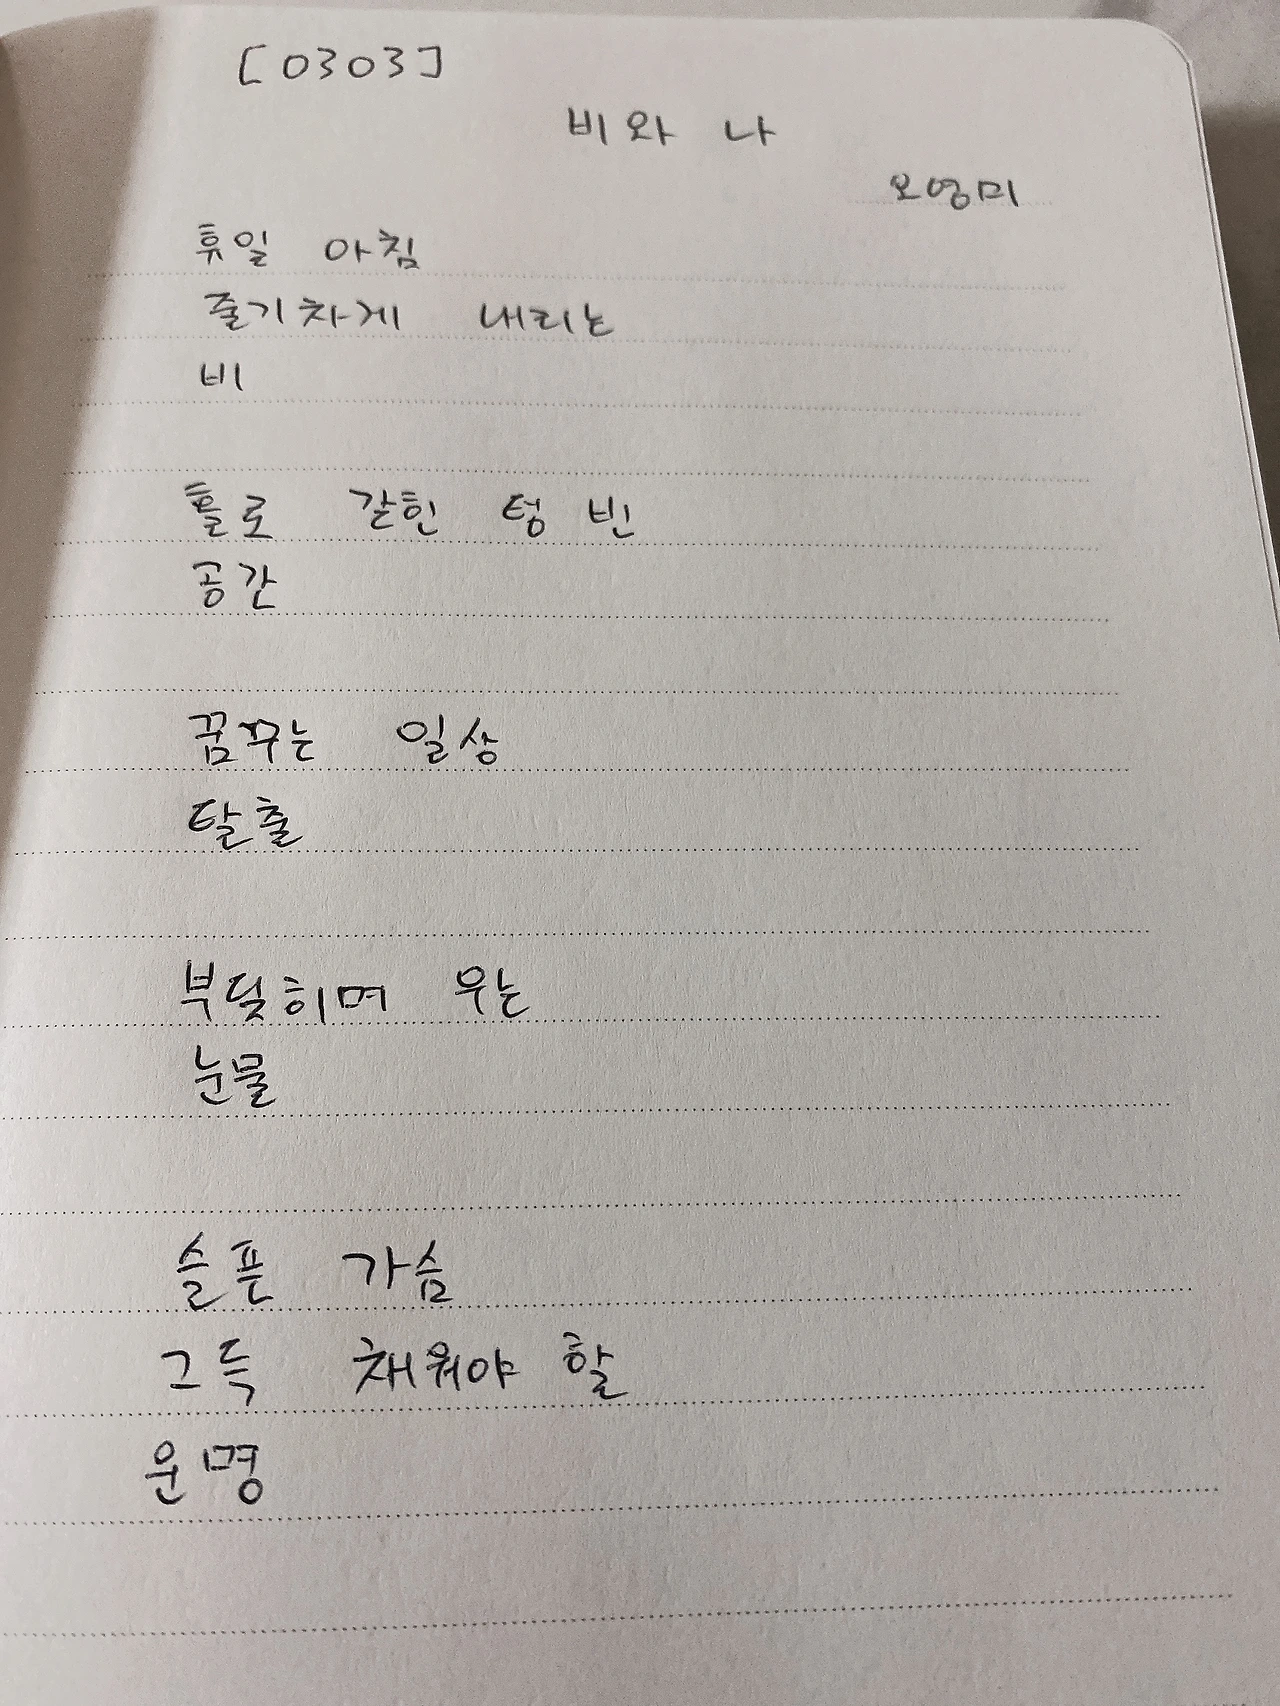 [0303]
비와 나
오영미
휴일 아침
줄기차게 내리는
비
홀로 갇힌 텅 빈
공간
꿈꾸는 일상
탈출
부딪히며 우는
눈물
슬픈 가슴
그득 채워야 할
운명